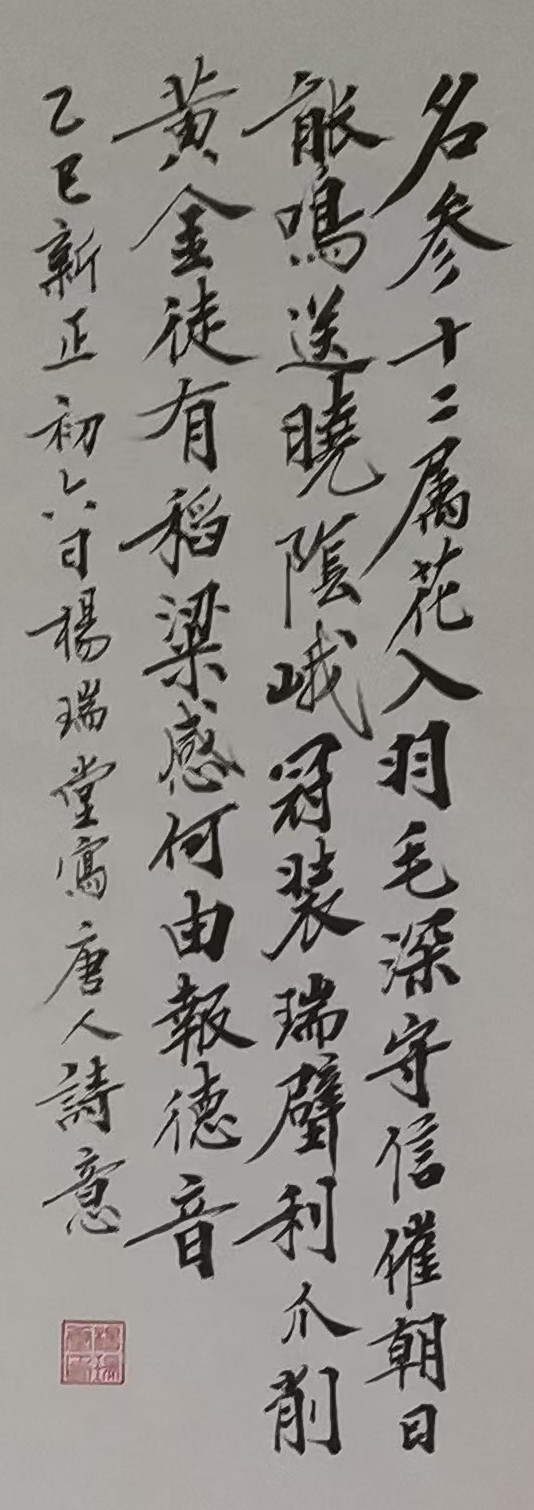 名參十二屬花入羽毛深守信催朝日
能鳴送曉陰峨冠裝瑞璧利爪削
黃金徒有稻粱感何由報德音
乙巳新正初六日楊瑞堂寫唐人詩意